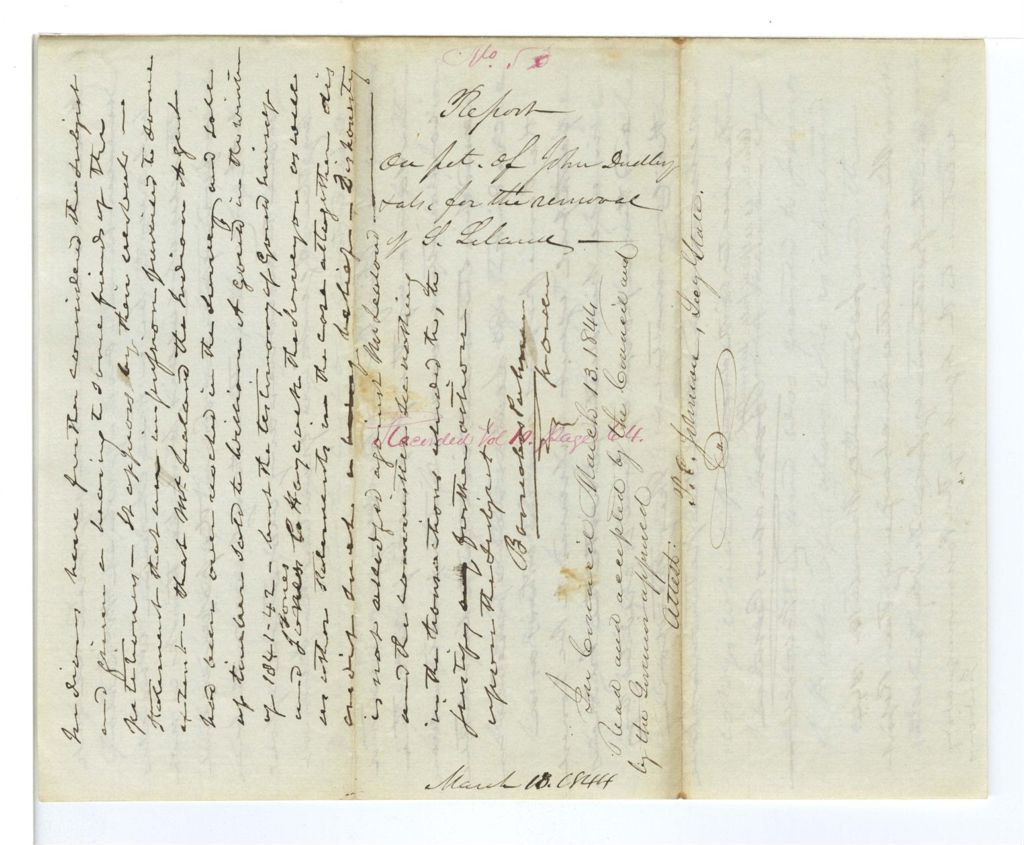 Indians have further considered the subject
and given a hearing to some friends of the
petitioners – It appears by their evidence –
statement that an impression prevailed to some
extent – that Mr Leland the Indian Agent
had been over reached in the survey and sale
of timber sold to William A Gould in the winter
of 1841–42 – but the testimony of Gound
and Jones to Haycock the surveyor as well
as other statements in the case altogether dis
credit such a belief – Dishonesty
is not alledged against Mr Leland
and the committee see nothing
in the transactions alluded to, to
justify any further action
upon the subject
Benedict Palmer
No. 58
Report
on pet. of John Dudley
& als. for the removal
of S. Leland –
Recorded Vol 19. Page 64.
In Council March 13. 1844
Read and accepted by the Council and
by the Governor approved
Attest:
P. C. Johnson, Secy State.
March 13. 1844